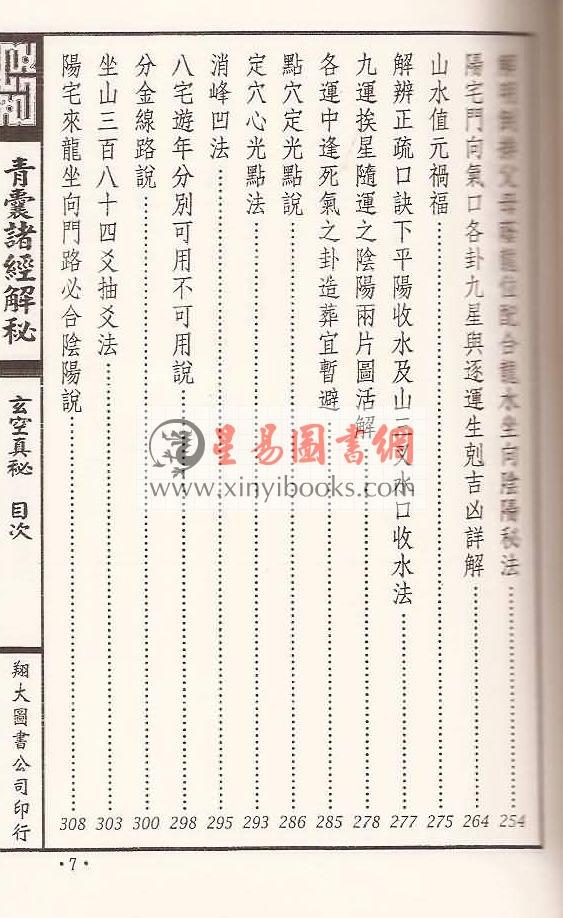 父母蔭龍位配合龍水坐向陰陽秘法 254
陽宅門向氣口各卦九星與逐運生剋吉凶詳解 264
山水值元禍福 275
解辨正疏口訣下平陽收水及山三叉水口收水法 277
九運挨星隨運之陰陽兩片圖活解 278
各運中逢死氣之卦造葬宜暫避 285
點穴定光點說 286
定穴心光點法 293
消峰凹法 295
八宅遊年分別可用不可用說 298
分金線路說 300
坐山三百八十四爻抽爻法 303
陽宅來龍坐向門路必合陰陽說 308
青囊諸經解秘
玄空真秘 目次
翔大圖書公司印行
·7·
星易圖書網
www.xinyibooks.com